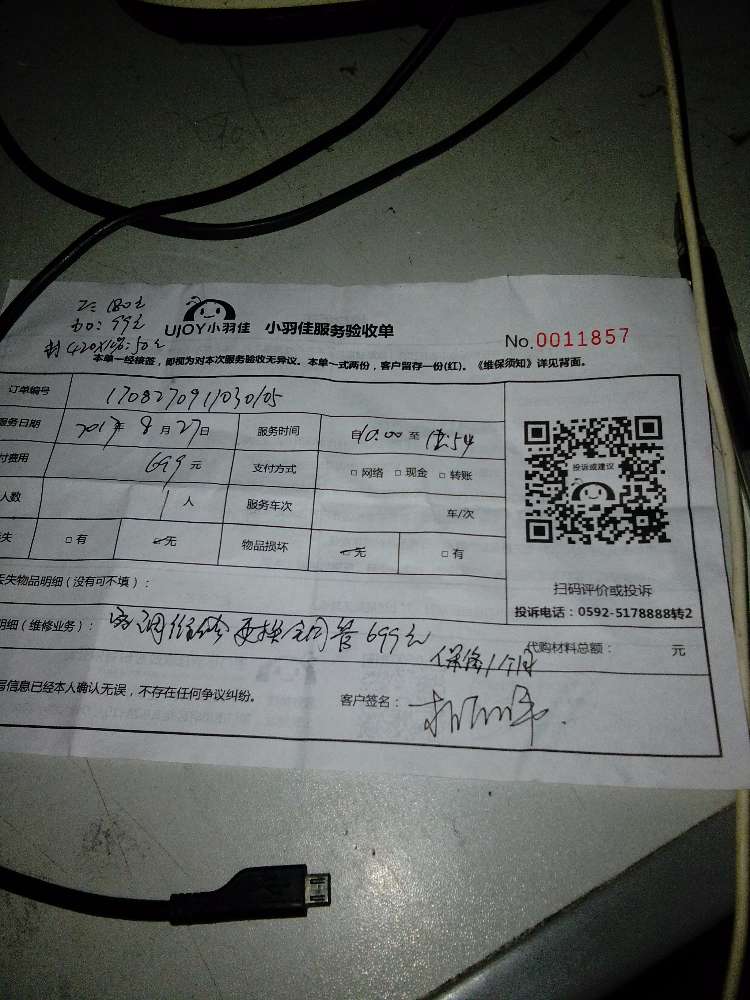 工：180元
加：99元
UJOY小羽佳 小羽佳服务验收单
No.0011857
本单一经接签，即视为对本次服务验收无异议。本单一式两份，客户留存一份(红)。《维保须知》详见背面。
订单编号 1708270911030105
服务日期 2017年8月27日 服务时间 自10:00至
付费用 699元 支付方式 □网络 □现金 □转账
人数 1人 服务车次 车/次
失 □有 无 物品损坏 无 □有
投诉或建议
扫码评价或投诉
投诉电话：0592-5178888转2
丢失物品明细（没有可不填）：
明细（维修业务）： 空调维修更换全铜管699元
保修1个月
代购材料总额： 元
写信息已经本人确认无误，不存在任何争议纠纷。 客户签名：